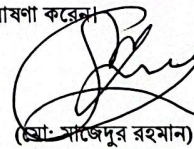 ঘোষণা করেন।
(মো: সাজেদুর রহমান)